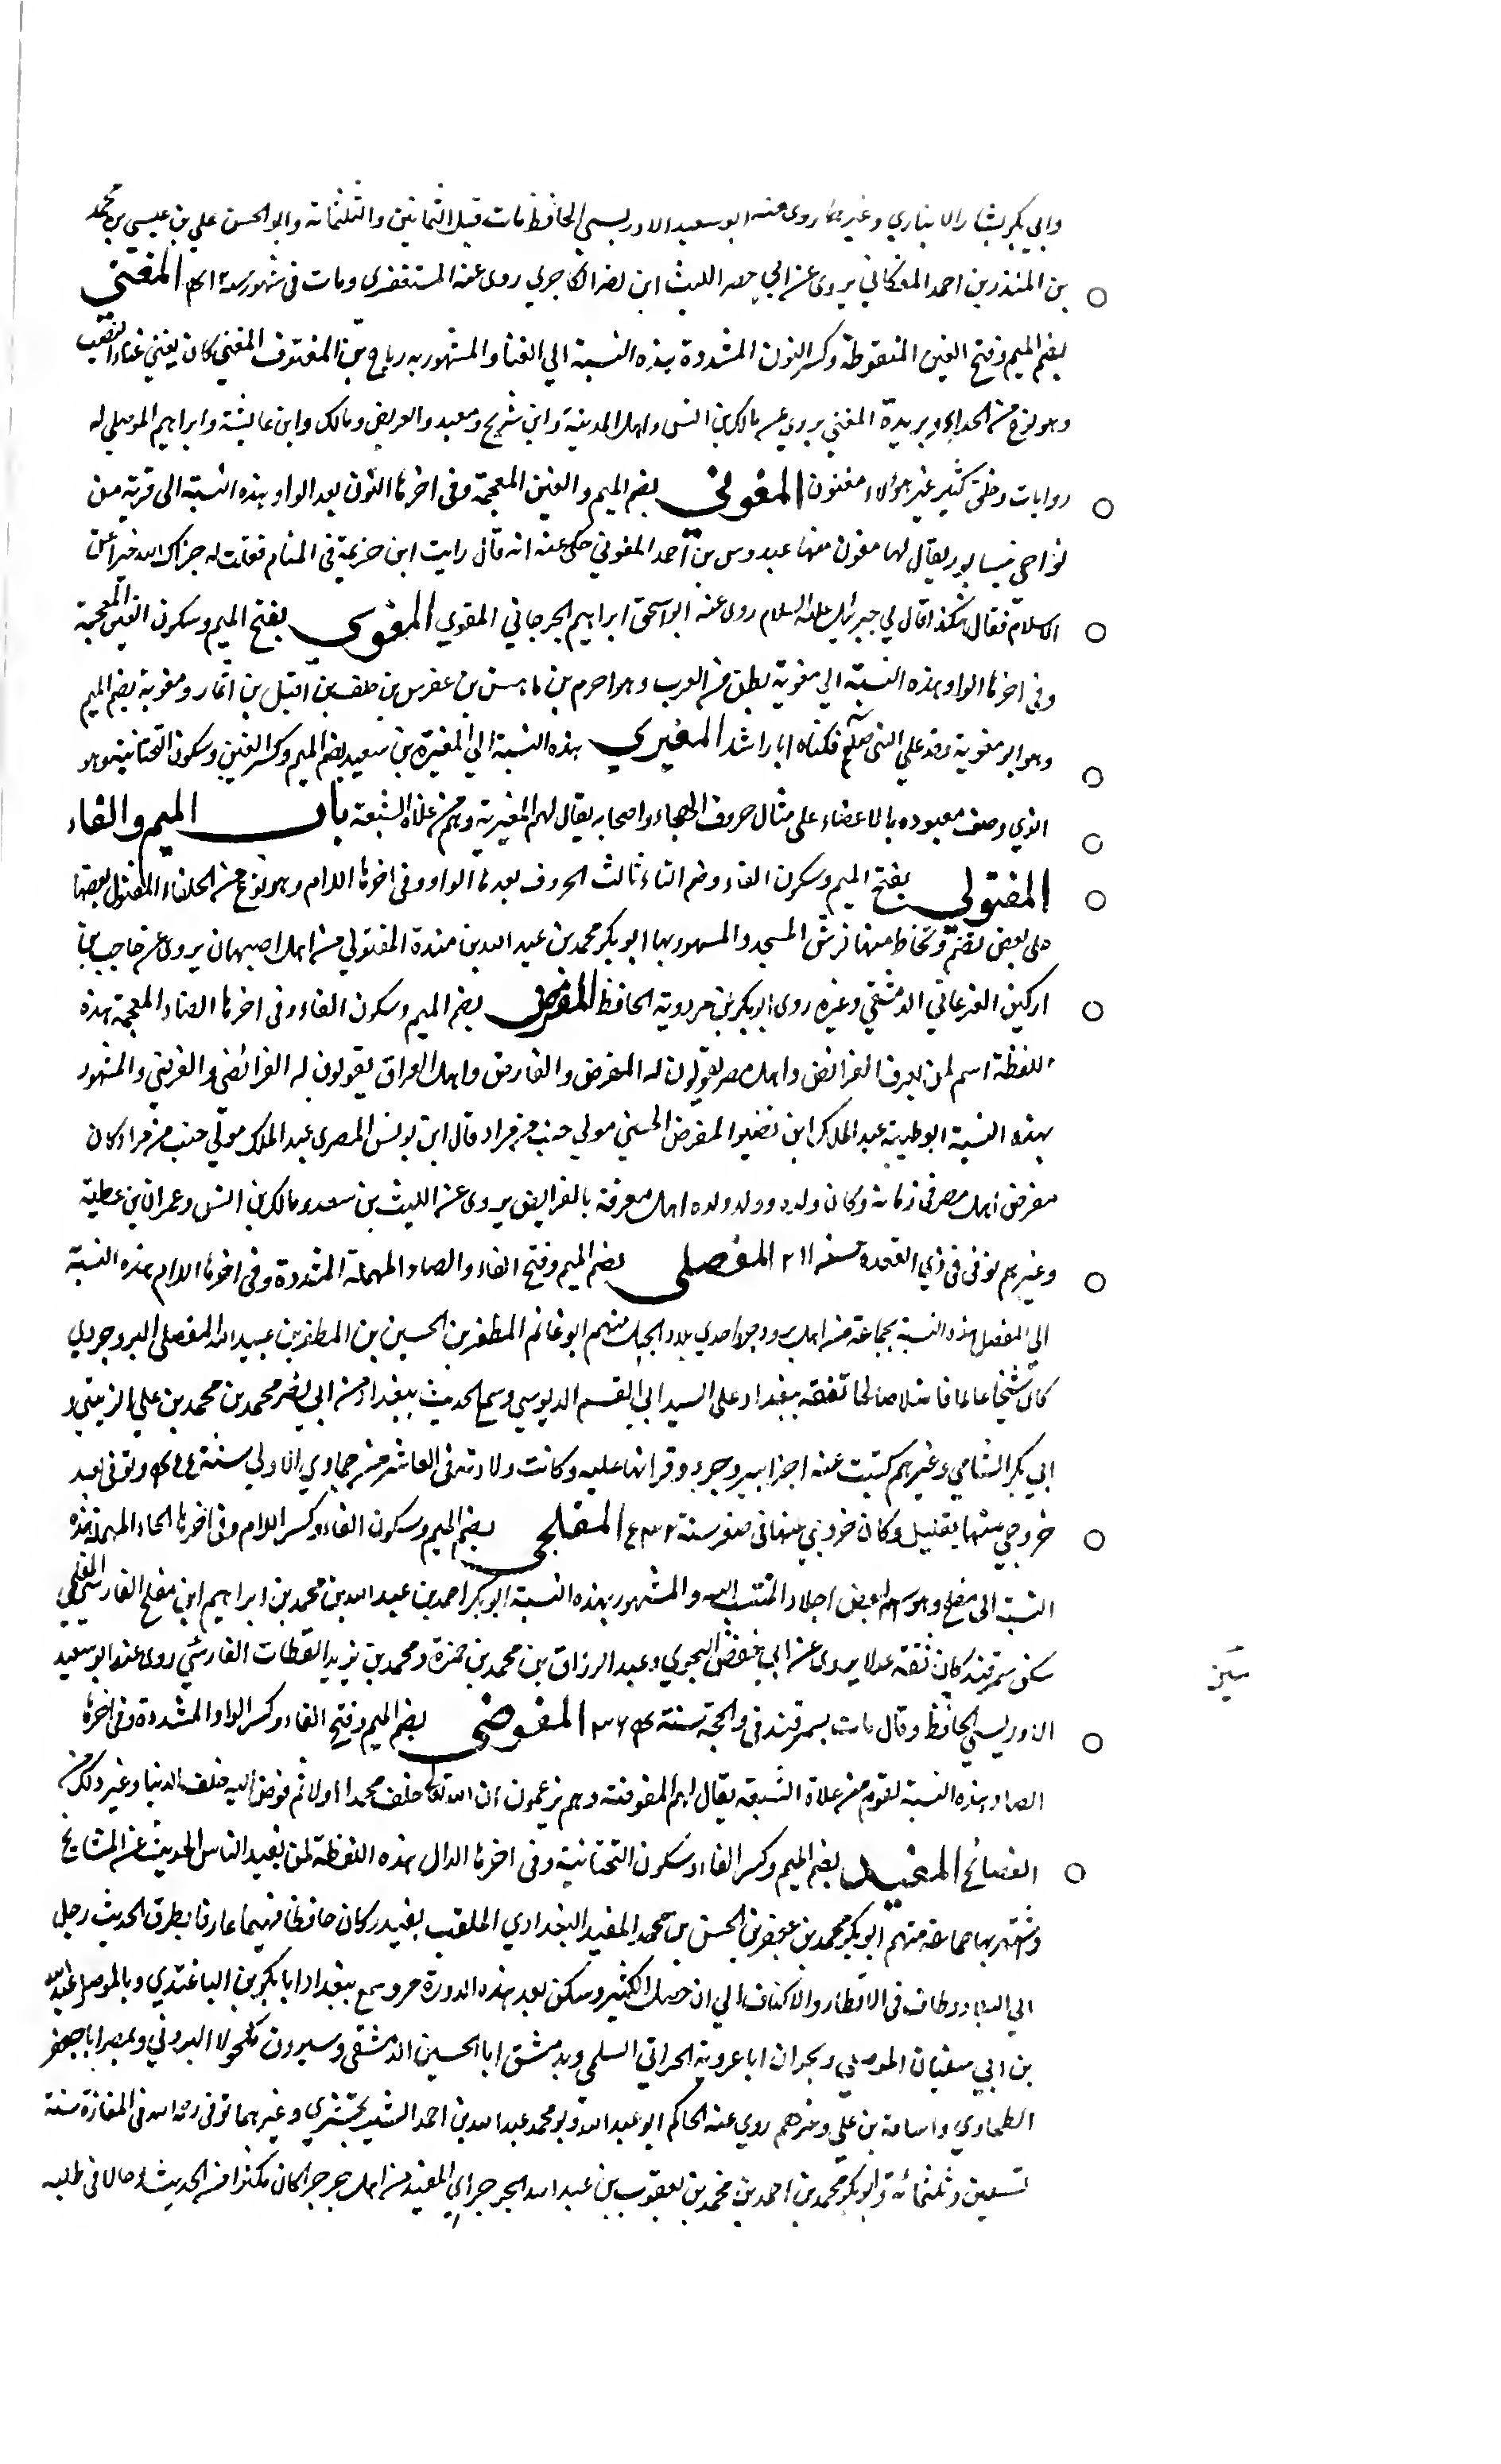 وابي بكر بشار الانباري وغيرهما روى عنه ابو سعيد الادريسي الحافظ مات قبل الثمانين والثلثمائة وابو الحسن علي بن عيسى بن محمد
بن المنذر بن احمد المغكاني يروى عن ابي نصر الليث ابن نصر الكاجري روى عنه المستغفرى ومات في شهور سنة المغني
بضم الميم وفتح الغين المنقوطة وكسر النون المشددة هذه النسبة الي الغناء والمشهور به رباح بن المغترف المغني كان يغني غناء النصب
وهو نوع من الحداء وبريدة المغني يروي عن مالك بن انس واهل المدينة وابن شريح ومعبد والغريض ومالك وابن عائشة وابراهيم الموصلي له
روايات وخلق كثير غير هؤلاء مغنون المغوني بضم الميم والغين المعجمة وفي اخرها النون بعد الواو هذه النسبة الى قرية من
نواحي نيسابور يقال لها مغون منها عبدوس بن احمد المغوني حكى عنه انه قال رايت ابن خزيمة في المنام فقلت له جزاك الله خيرا عن
الاسلام فقال هكذا قال لي جبرئيل عليه السلام روى عنه ابو اسحق ابراهيم الجرجاني المقري المغوي بفتح الميم وسكون الغين المعجمة
وفي اخرها الواو هذه النسبة الي مغوية بطن من العرب وهو اجرم بن ناهس بن عفرس بن خلف بن اقتل بن انمار ومغوية بضم الميم
وهو ابو مغوية وفد علي النبي صلعم فكناه ابا راشد المغيري هذه النسبة الي المغيرة بن سعيد بضم الميم وكسر الغين وسكون التحتانية وهو
الذي وصف معبوده بالاعضاء على مثال حروف الهجاء واصحابه يقال لهم المغيرية وهم من غلاة الشيعة باب الميم والفاء
المفتولي بفتح الميم وسكون الفاء وضم التاء ثالث الحروف بعدها الواو وفي اخرها اللام وهو نوع من الحلفاء المفتول بعضها
على بعض تضم وتخاط منها فرش المسجد والمشهور بها ابو بكر محمد بن عبد الله بن مندة المفتولي من اهل اصبهان يروى عن حاجب بن
اركين الفرغاني الدمشقي وغيره روى ابو بكر بن مردوية الحافظ المفرض بضم الميم وسكون الفاء وفي اخرها الضاد المعجمة هذه
اللفظة اسم لمن يعرف الفرائض واهل مصر يقولون له المفرض والفارض واهل العراق يقولون له الفرائضي والفرضي والمشهور
بهذه النسبة ابو طيبة عبد الملك ابن نصير المفرض الجنبي مولي جنب من مراد قال ابن يونس المصرى عبد الملك مولي جنب من مراد كان
مفرض اهل مصر في زمانه وكان ولده وولد ولده اهل معرفة بالفرايض يروى عن الليث بن سعد ومالك بن انس وعمران بن عطية
وغيرهم توفي في ذي القعدة سنة ٢١١ المفصلي بضم الميم وفتح الفاء والصاد المهملة المشددة وفي اخرها اللام هذه النسبة
الي المفصل هذه النسبة لجماعة من اهل بروجرد احدي بلاد الجبل منهم ابو غانم المظفر بن الحسين بن المظفر بن عبيد الله المفصلي البروجردي
كان شيخا عالما فاضلا صالحا تفقه ببغداد على السيد ابي القسم الدبوسي وسمع الحديث ببغداد من ابي نصر محمد بن محمد بن علي الزينبي و
ابي بكر الشامي وغيرهم كتبت عنه اجزا ببروجرد وقراتها عليه وكانت ولادته في العاشر من جمادي الاولي سنة وتوفي بعد
خروجي منها بقليل وكان خروجي منها في صفر سنة المفلحي بضم الميم وسكون الفاء وكسر اللام وفي اخرها الحاء المهملة هذه
النسبة الى مفلح وهو اسم لبعض اجداد المنتسب اليه والمشهور بهذه النسبة ابو بكر احمد بن عبد الله بن محمد بن ابراهيم ابن مفلح الفارسي المفلحي
سكن سمرقند كان ثقة عدلا يروى عن ابي حفص البجيري وعبد الرزاق بن محمد بن حمزة ومحمد بن يزيد القطان الفارسي روى عنه ابو سعيد
الادريسي الحافظ وقال مات بسمرقند في ذي الحجة سنة المفوضي بضم الميم وفتح الفاء وكسر الواو المشددة وفي اخرها
الضاد هذه النسبة لقوم من غلاة الشيعة يقال لهم المفوضة وهم يزعمون ان الله تعالى خلق محمدا اولا ثم فوض اليه خلق الدنيا وغير ذلك من
الفضائح المفيد بضم الميم وكسر الفاء وسكون التحتانية وفي اخرها الدال هذه اللفظة لمن يفيد الناس الحديث عن المشايخ
واشتهر بها جماعة منهم ابو بكر محمد بن جعفر بن الحسن بن محمد المفيد البغدادي الملقب بغندر كان حافظا فهيما عارفا بطرق الحديث رحل
الي البلاد وطاف في الاقطار والاكناف الي ان حصل الكثير وسكن بعد هذه الدورة مرو سمع ببغداد ابا بكر بن الباغندي وبالموصل عبد الله
بن ابي سفيان الموصلي وبحران ابا عروبة الحراني السلمي وبدمشق ابا الحسين الدمشقي وببيروت مكحولا البيروتي وبمصر ابا جعفر
الطحاوي واسامة بن علي وغيرهم روي عنه الحاكم ابو عبد الله وابو محمد عبد الله بن احمد الشيرنخشيري وغيرهما توفي رحمه الله في المفازة سنة
تسعين وثلثمائة وابو بكر محمد بن احمد بن محمد بن يعقوب بن عبد الله الجرجراي المفيد من اهل جرجرايا كان مكثرا من الحديث رحالا في طلبه